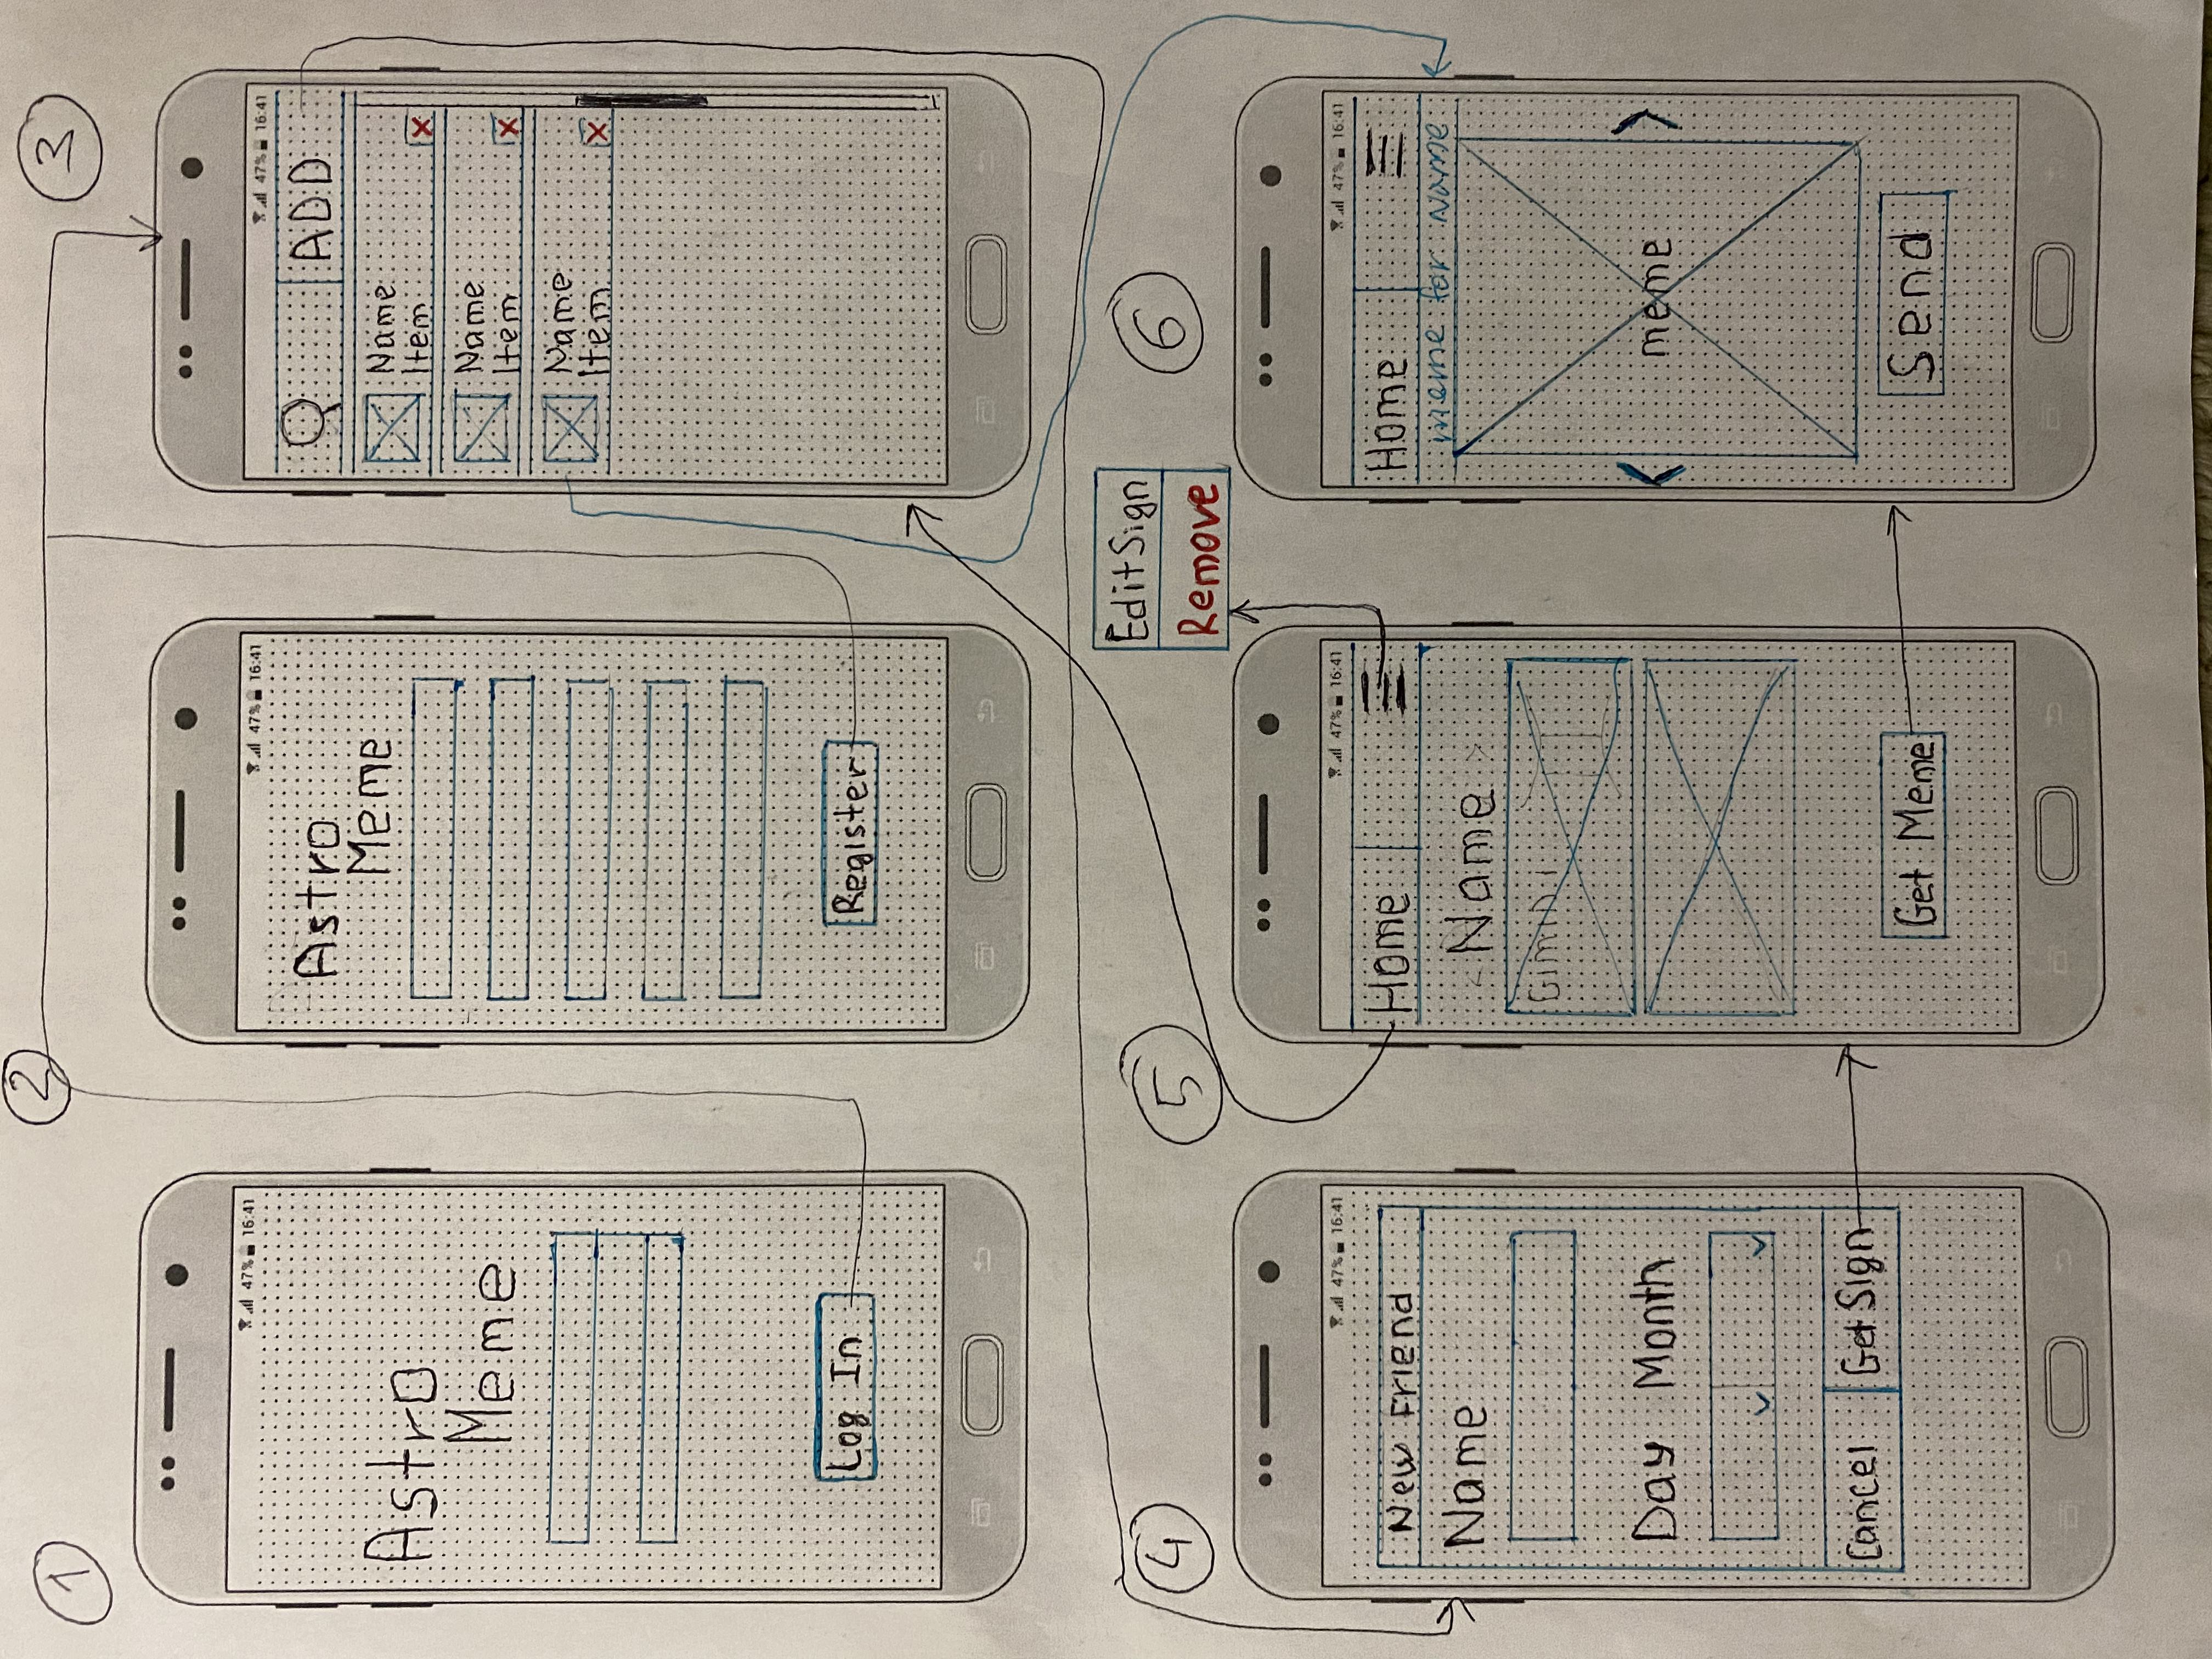 1
2
3
47% 16:41
Astro
Meme
Log In
47% 16:41
Astro
Meme
Register
47% 16:41
ADD
Name
Item
X
Name
Item
X
Name
Item
X
4
5
6
Edit Sign
Remove
47% 16:41
New Friend
Name
Day Month
Cancel Get Sign
47% 16:41
Home
< Name >
Gimini
Get Meme
47% 16:41
Home
meme for Name
< meme >
Send